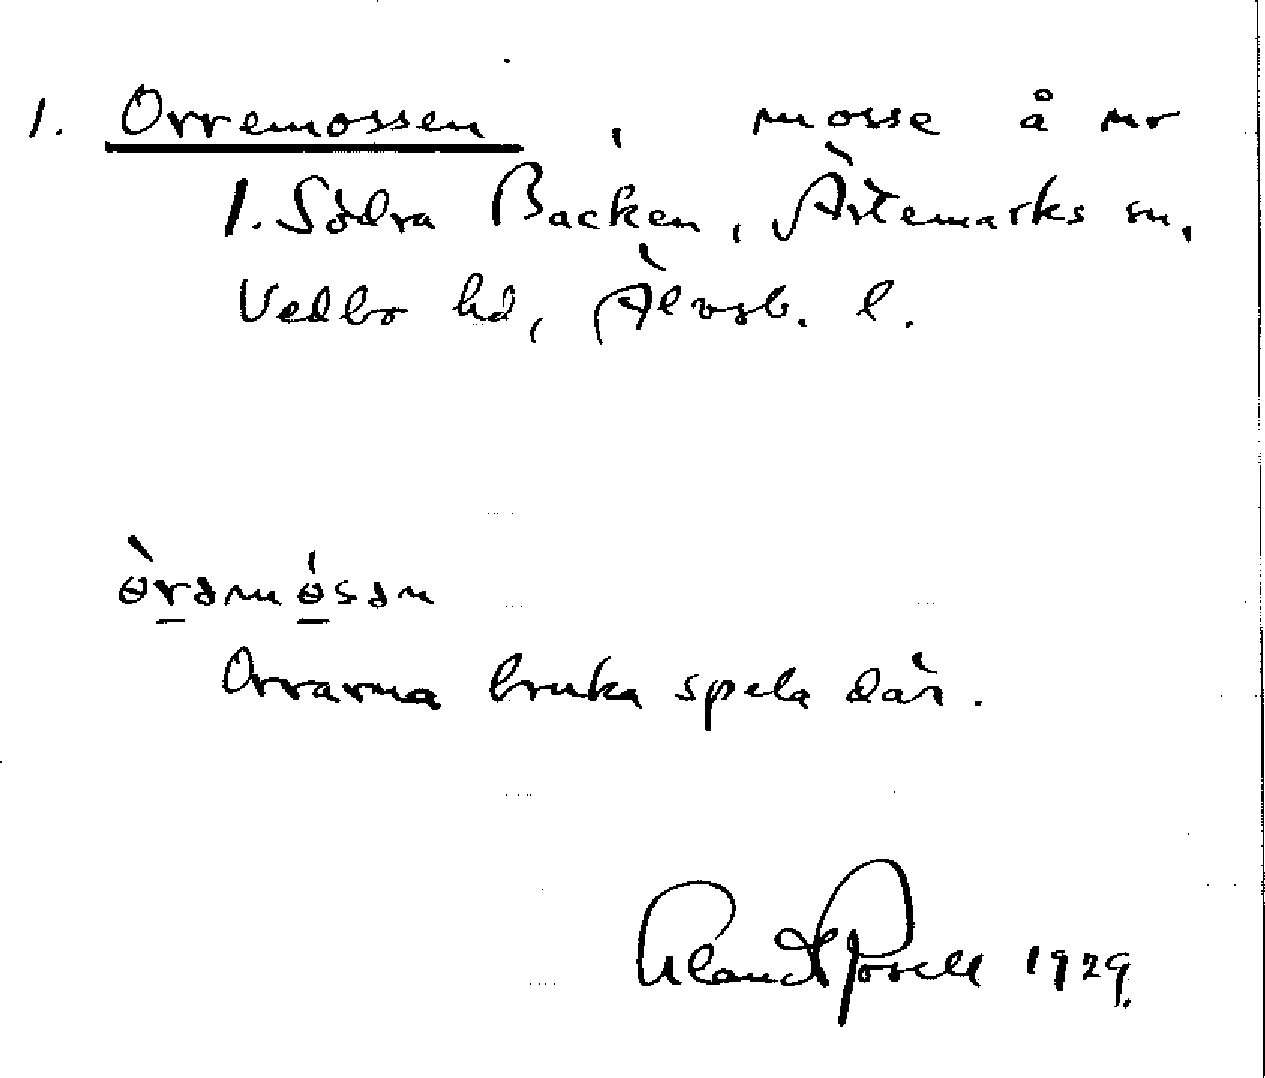 1. Orremossen, mosse å nr
1. Södra Backen, Ärtemarks sn,
Vedbo hd, Älvsb. l.
ɵ̀rəmɵ́sən
Orrarna bruka spela där.
1929.